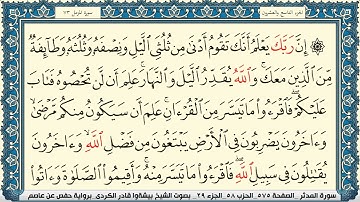 الجزء التاسع والعشرون
سورة المزمل ٧٣
۞ إِنَّ رَبَّكَ يَعْلَمُ أَنَّكَ تَقُومُ أَدْنَىٰ مِن ثُلُثَيِ ٱلَّيْلِ وَنِصْفَهُۥ وَثُلُثَهُۥ وَطَآئِفَةٌ
مِّنَ ٱلَّذِينَ مَعَكَ ۚ وَٱللَّهُ يُقَدِّرُ ٱلَّيْلَ وَٱلنَّهَارَ ۚ عَلِمَ أَن لَّن تُحْصُوهُ فَتَابَ
عَلَيْكُمْ ۖ فَٱقْرَءُوا۟ مَا تَيَسَّرَ مِنَ ٱلْقُرْءَانِ ۚ عَلِمَ أَن سَيَكُونُ مِنكُم مَّرْضَىٰ ۙ
وَءَاخَرُونَ يَضْرِبُونَ فِى ٱلْأَرْضِ يَبْتَغُونَ مِن فَضْلِ ٱللَّهِ ۙ وَءَاخَرُونَ
يُقَٰتِلُونَ فِى سَبِيلِ ٱللَّهِ ۖ فَٱقْرَءُوا۟ مَا تَيَسَّرَ مِنْهُ ۚ وَأَقِيمُوا۟ ٱلصَّلَوٰةَ وَءَاتُوا۟
سورة المدثر . الصفحة ٥٧٥ الحزب ٥٨ . الجزء ٢٩ . بصوت الشيخ بيشةوا قادر الكردى . برواية حفص عن عاصم